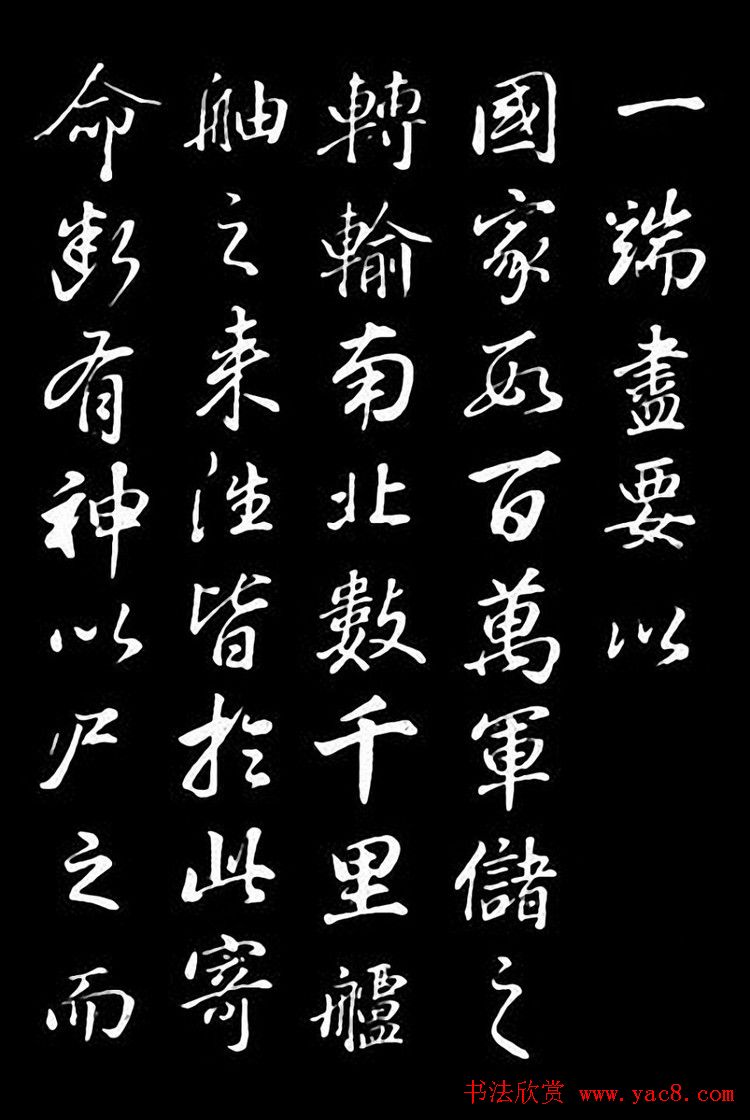 一端盡要以
國家數百萬軍儲之
轉輸南北數千里艫
舳之來往皆於此寄
命斷有神以尸之而
书法欣赏 www.yac8.com